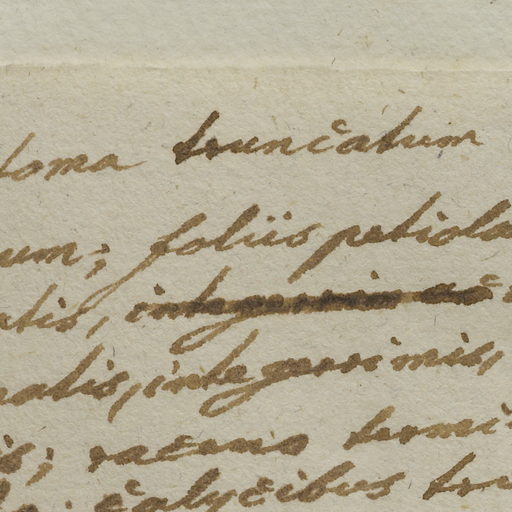 loma truncatum
um; foliis petiola
atis, integerrim ac
natis, integerrimis,
is; racemo termi
calycibus tru